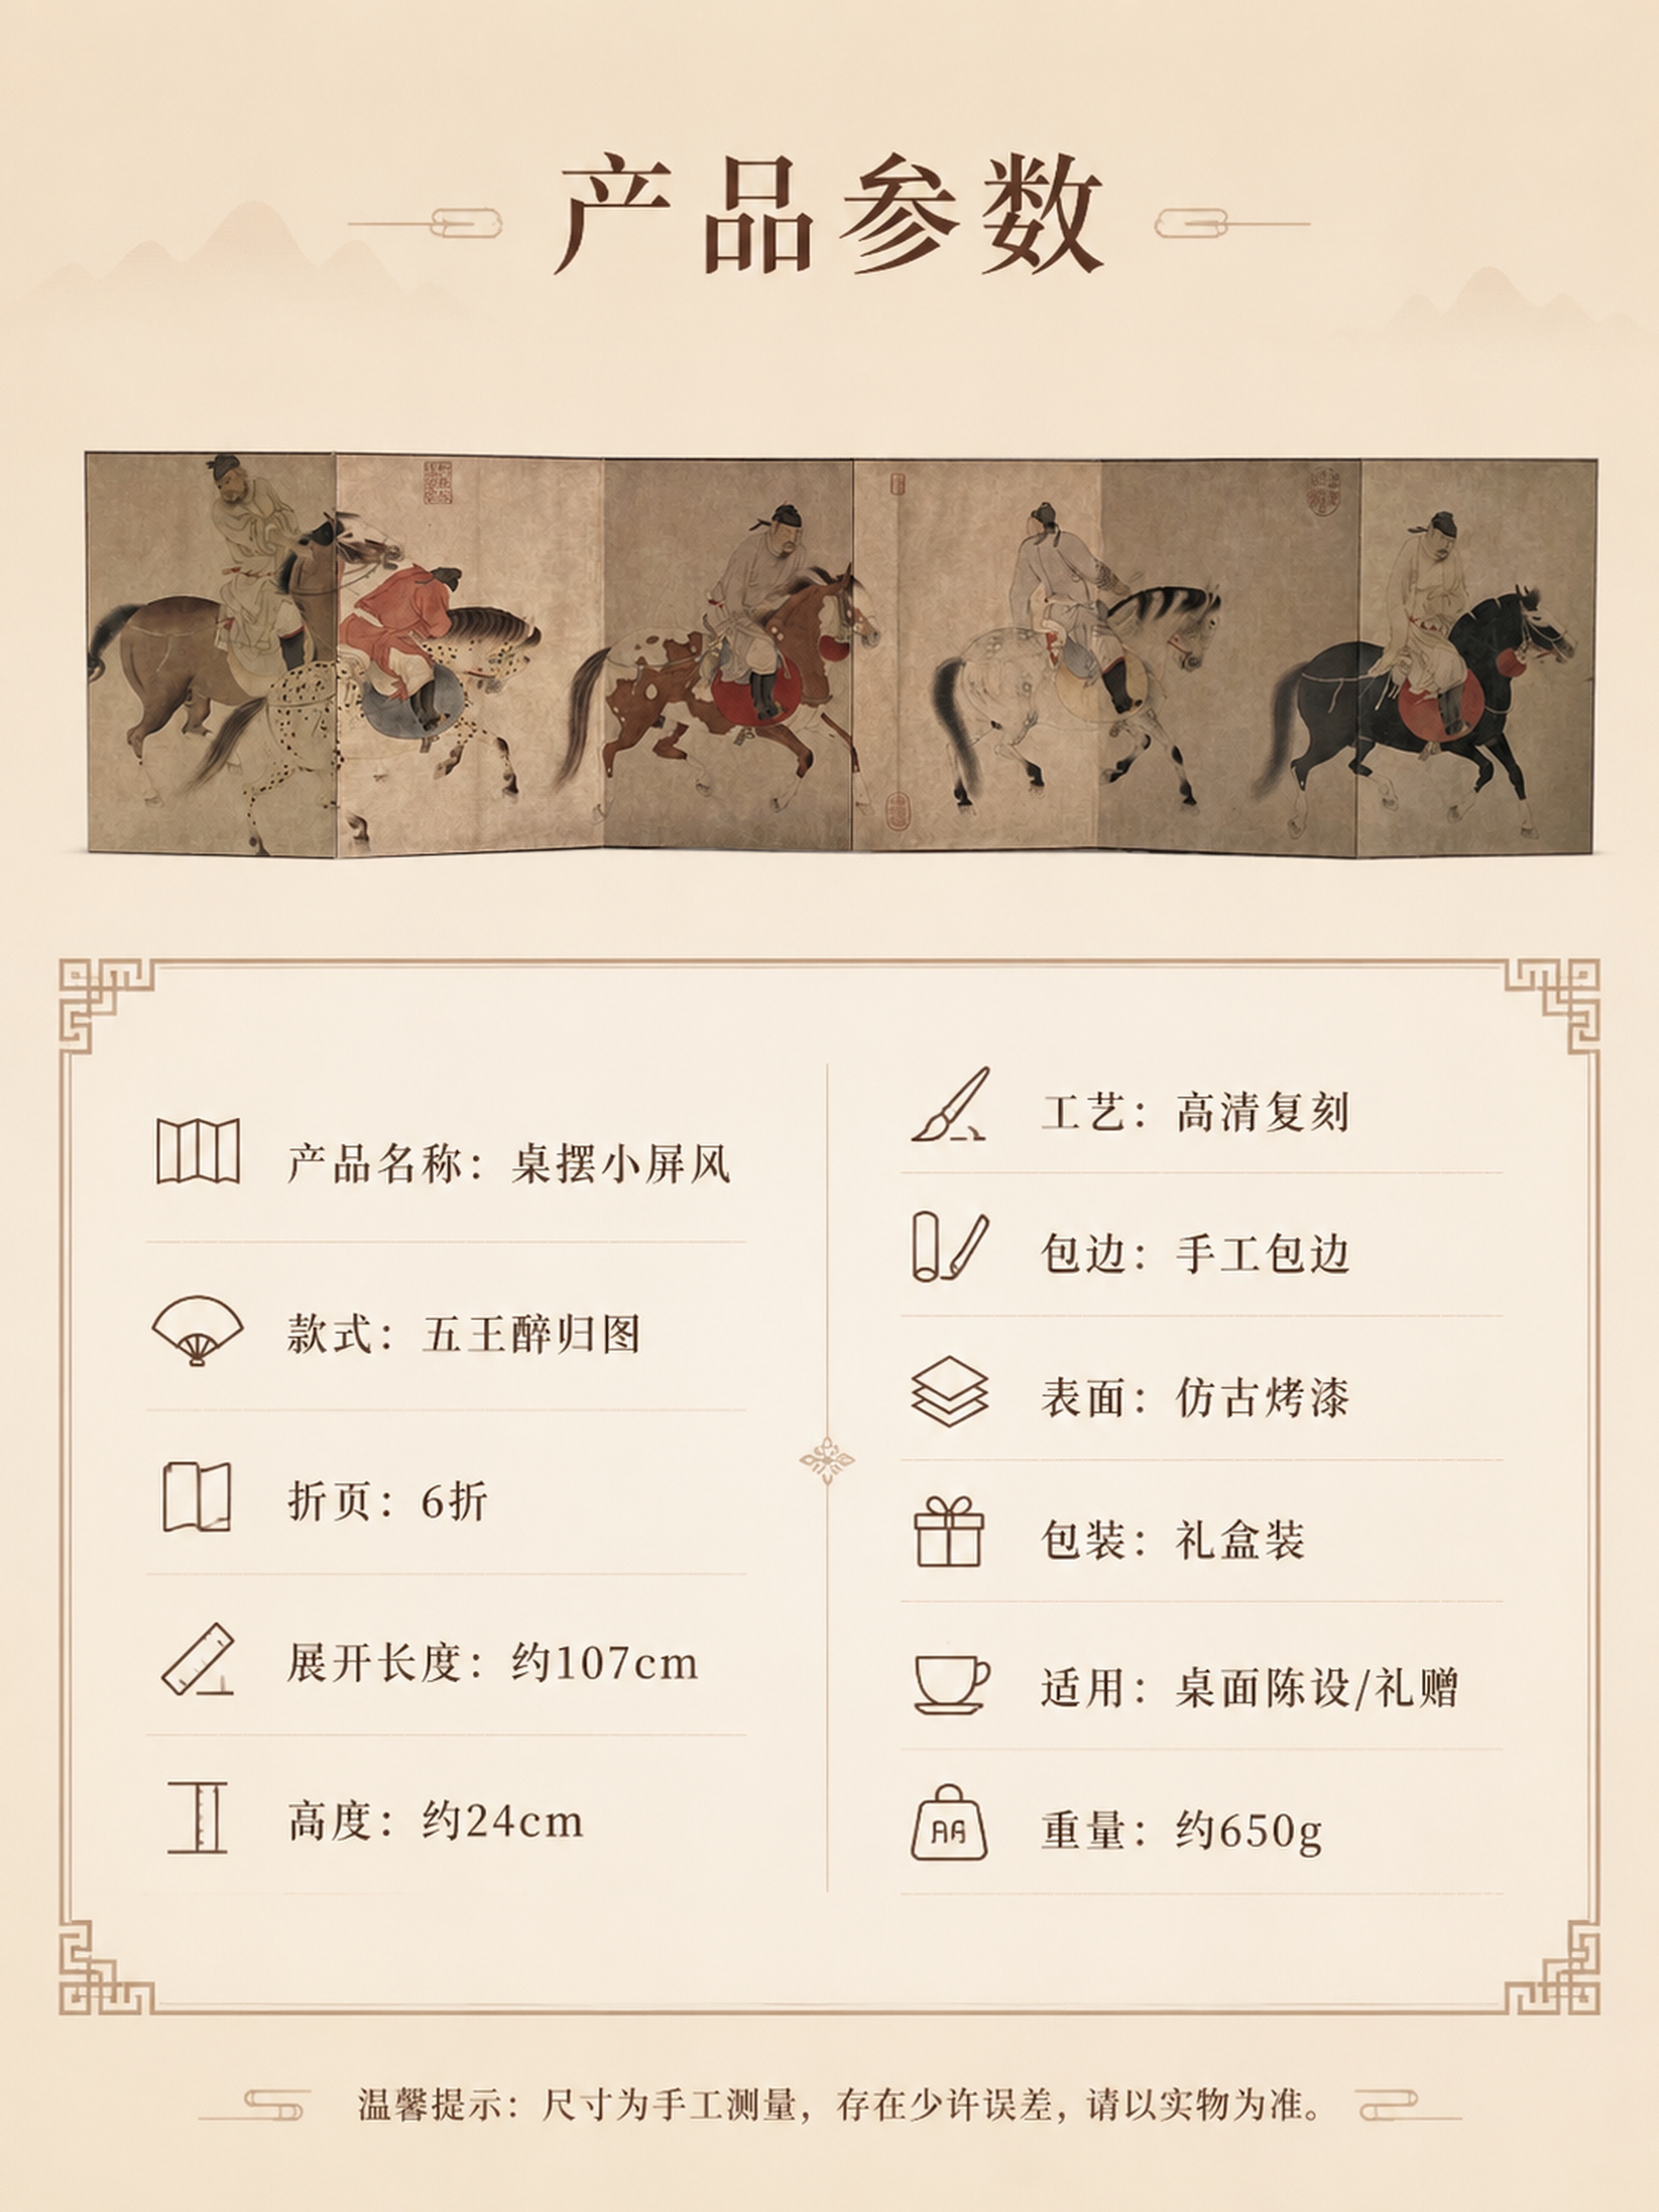 产品参数
产品名称：桌摆小屏风
款式：五王醉归图
折页：6折
展开长度：约107cm
高度：约24cm
工艺：高清复刻
包边：手工包边
表面：仿古烤漆
包装：礼盒装
适用：桌面陈设/礼赠
重量：约650g
温馨提示：尺寸为手工测量，存在少许误差，请以实物为准。